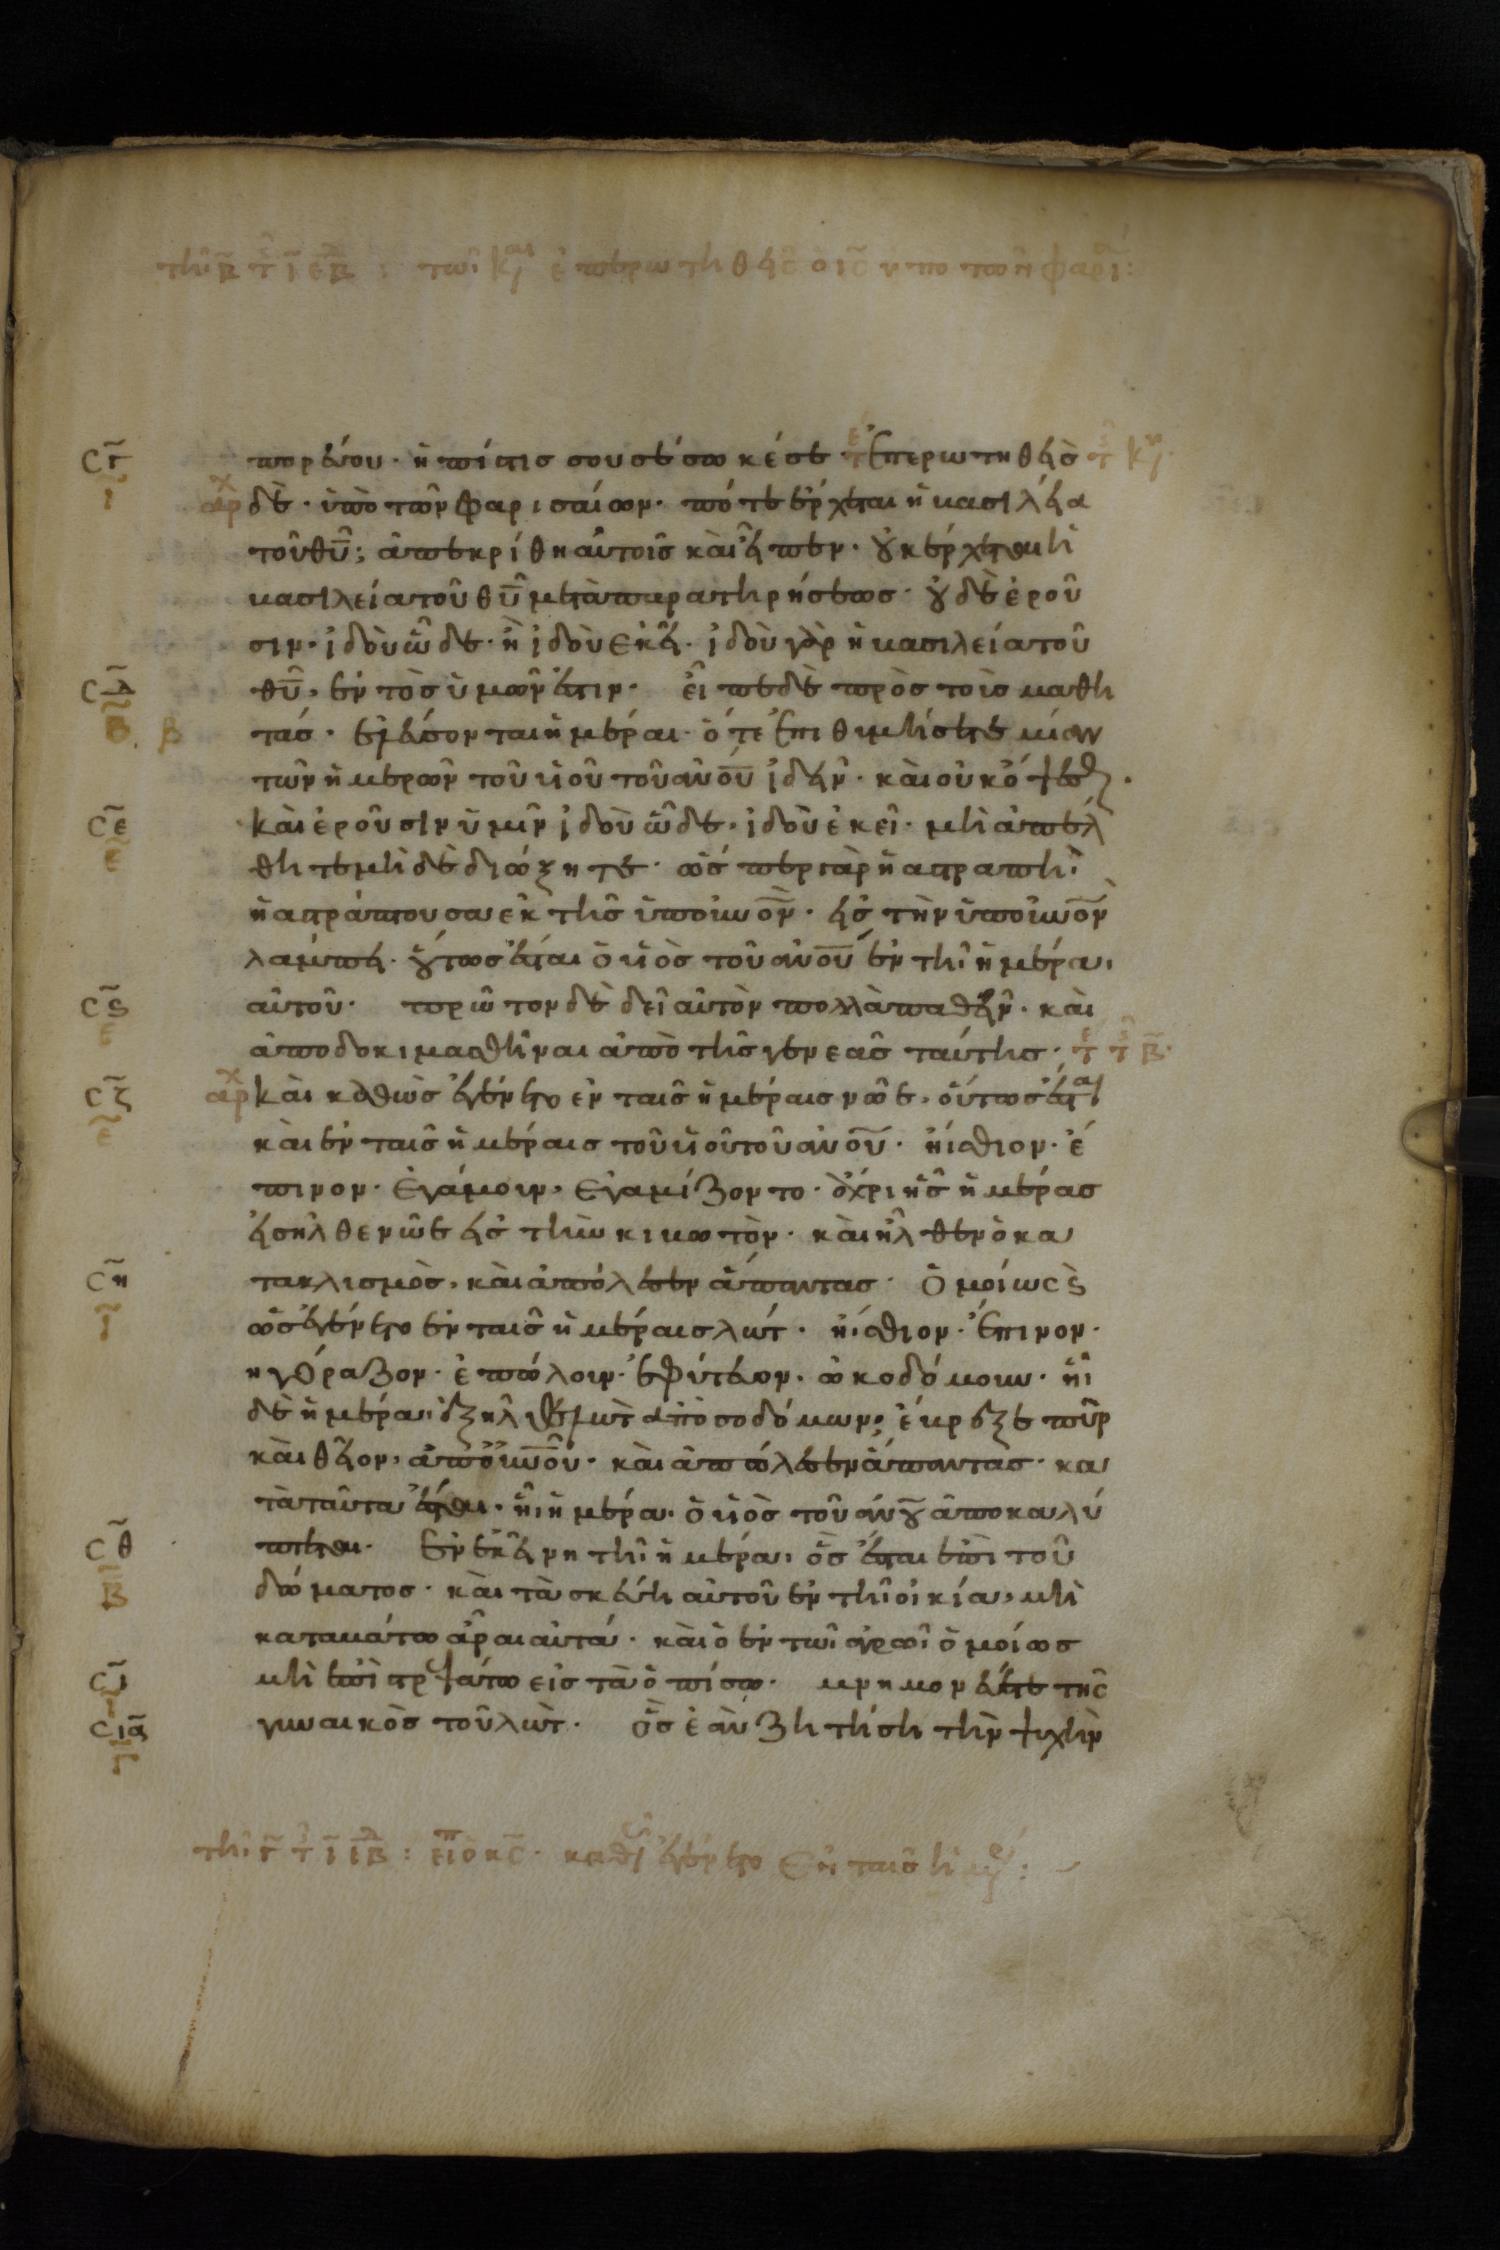 τῆ β τ ι εβδ : τῶ και επερωτηθεὶς ὁ ις υπο των φαρι :
πορεύου· ἡ πίστις σου σέσωκέ σε τε Ἐπερωτηθεὶς τ κυ
αρχ δὲ· ὑπὸ τῶν φαρισαίων· πότε ἔρχεται ἡ βασιλεία
τοῦ θυ; ἀπεκρίθη αὐτοῖς καὶ εἶπεν· οὐκ ἔρχεται ἡ
βασιλεία τοῦ θυ μετὰ παρατηρήσεως· οὐδὲ ἐροῦ
σιν· ἰδοὺ ὧδε· ἢ ἰδοὺ ἐκεῖ· ἰδοὺ γὰρ ἡ βασιλεία τοῦ
θυ, ἐντὸς ὑμῶν ἐστιν· εἶπε δὲ πρὸς τοὺς μαθη
τάς· ἐλεύσονται ἡμέραι· ὅτε ἐπιθυμήσετε μίαν
τῶν ἡμερῶν τοῦ υἱοῦ τοῦ ανου ἰδεῖν· καὶ οὐκ ὄψεσθε·
καὶ ἐροῦσιν ὑμῖν ἰδοὺ ὧδε, ἰδοὺ ἐκεῖ· μὴ ἀπέλ
θητε μὴ δὲ διώξητε· ὥσπερ γὰρ ἡ ἀστραπὴ
ἡ ἀστράπτουσα ἐκ τῆς ὑπ' οὐνον· εἰς τὴν ὑπ' οὐνον
λάμπει· οὕτως ἔσται ὁ υἱὸς τοῦ ανου ἐν τῆ ἡμέρα
αὐτοῦ· πρῶτον δὲ δεῖ αὐτὸν πολλὰ παθεῖν· καὶ
ἀποδοκιμασθῆναι ἀπὸ τῆς γενεᾶς ταύτης· τε τ β
αρχ καὶ καθὼς ἐγένετο ἐν ταῖς ἡμέραις νῶε, οὕτως ἔσται
καὶ ἐν ταῖς ἡμέραις τοῦ υἱοῦ τοῦ ανου· ἤσθιον· ἔ
πινον· ἐγάμουν, ἐγαμίζοντο· ἄχρι ἧς ἡμέρας
εἰσῆλθε νῶε εἰς τὴν κιβωτὸν· καὶ ἦλθεν ὁ κα
τακλισμὸς, καὶ ἀπώλεσεν ἅπαντας· Ὁμοίως καὶ
ὡς ἐγένετο ἐν ταῖς ἡμέραις λώτ· ἤσθιον· ἔπινον·
ἠγόραζον· ἐπώλουν· ἐφύτευον, ὠκοδόμουν· ἧ
δὲ ἡμέρα ἐξῆλθε λὼτ ἀπὸ σοδόμων, ἔβρεξε πῦρ
καὶ θεῖον, ἀπ' οὐνου· καὶ ἀπώλεσεν ἅπαντας· κα
τὰ ταῦτα ἔσται· ἧ ἡμέρα ὁ υἱὸς τοῦ ανου ἀποκαλύ
πτεται· Ἐν ἐκείνη τῆ ἡμέρα, ὃς ἔσται ἐπὶ τοῦ
δώματος· καὶ τὰ σκεύη αὐτοῦ ἐν τῆ οἰκία, μὴ
καταβάτω ἆραι αὐτά· καὶ ὁ ἐν τῶ ἀγρῶ ὁμοίως
μὴ ἐπιστρεψάτω εἰς τὰ ὀπίσω· μνημονεύετε τῆς
γυναικὸς τοῦ λὼτ· ὃς ἐὰν ζητήση τὴν ψυχὴν
τῆ γ τ ι ιβ : εἶπ ὁ κς· καθ ἐγένετο ἐν ταῖς ημ :
σγ
ι
σδ
β
β
σε
ε
σς
ε
σζ
ε
ση
ι
σθ
β
σι
ι
σια
γ